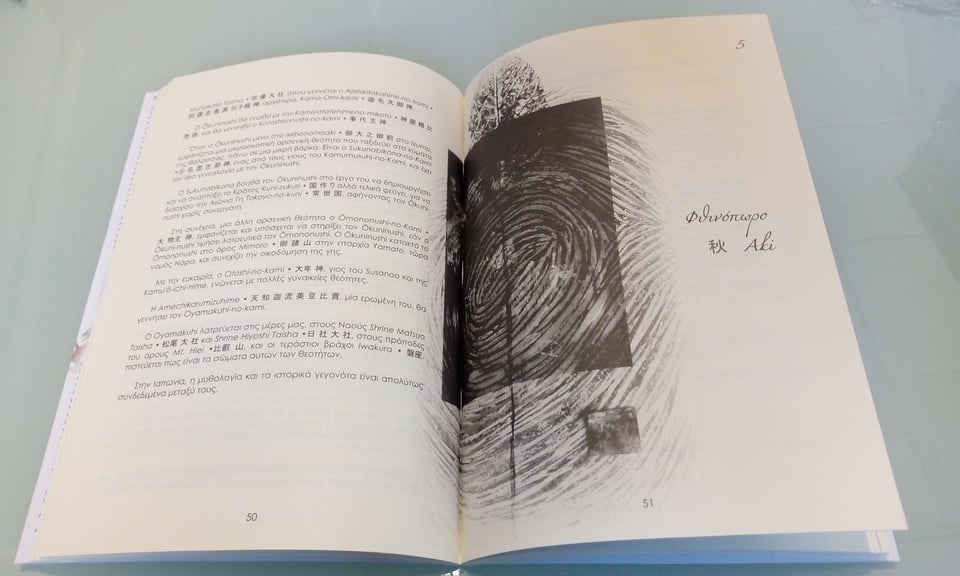 Munakata Taisha • 宗像大社, όπου γεννιέται ο Ajishikitakahine-no-kami •
阿遅志貴高日子根神, αργότερα, Kamo-Omi-kami • 迦毛大御神.
Ο Ōkuninushi θα ενωθεί με την Kamiyatatehimeno-mikoto • 神屋楯比
売命, και θα γεννηθεί ο Kotoshironushi-no-kami • 事代主神
Όταν ο Ōkuninushi μένει στο Mihonomisaki • 御大之御前 στο Izumo,
εμφανίζεται μια μικροσκοπική αρσενική θεότητα που ταξιδεύει στα κύματα
της θάλασσας, πάνω σε μια μικρή βάρκα. Είναι ο Sukunabikona-no-Kami
•少名毘古那神, ένας από τους γιους του Kamumusuhi-no-kami, και έχει
την ίδια γενεαλογία με τον Ōkuninushi.
Ο Sukunabikona βοηθά τον Ōkuninushi στο έργο του να δημιουργήσει
και να αναπτύξει το Κράτος Kuni-zukuri • 国作り αλλά τελικά φεύγει για να
διασχίσει την Αιώνια Γη Tokoyo-no-kuni • 常世国, αφήνοντας τον Ōkuni-
nushi χωρίς συνεργάτη.
Στη συνέχεια, μια άλλη αρσενική θεότητα ο Ōmononushi-no-Kami •
大物主神, εμφανίζεται και υπόσχεται να στηρίξει τον Ōkuninushi, εάν ο
Ōkuni-nushi τιμήσει λατρευτικά τον Ōmononushi. Ο Ōkuninushi κατακτά το
Ōmononushi στο όρος Mimoro • 御諸山 στην επαρχία Yamato, τώρα
νομός Νάρα, και συνεχίζει την οικοδόμηση της γης.
Με την ευκαιρία, ο Otoshi-no-kami • 大年神, γιος του Susanoo και της
Kamu'ō-ichi-hime, ενώνεται με πολλές γυναικείες θεότητες.
Η Amechikarumizuhime • 天知迦流美豆比売, μία ερωμένη του, θα
γεννήσει τον Oyamakuhi-no-kami.
Ο Oyamakuhi λατρεύεται στις μέρες μας, στους Ναούς Shrine Matsuo
Taisha •松尾大社 και Shrine Hiyoshi Taisha •日吉大社, στους πρόποδες
του όρους Mt. Hiei •比叡山, και οι τεράστιοι βράχοι Iwakura • 磐座,
πιστεύεται πως είναι τα σώματα αυτών των θεοτήτων.
Στην Ιαπωνία, η μυθολογία και τα ιστορικά γεγονότα είναι απολύτως
συνδεδεμένα μεταξύ τους.
50
5
Φθινόπωρο
秋 Aki
51